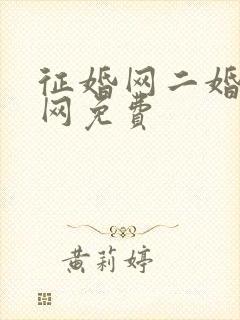 征婚网二婚
网免费
黄莉婷